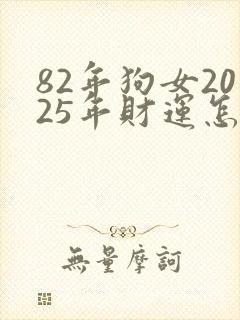 82年狗女20
25年財運怎
無量摩訶